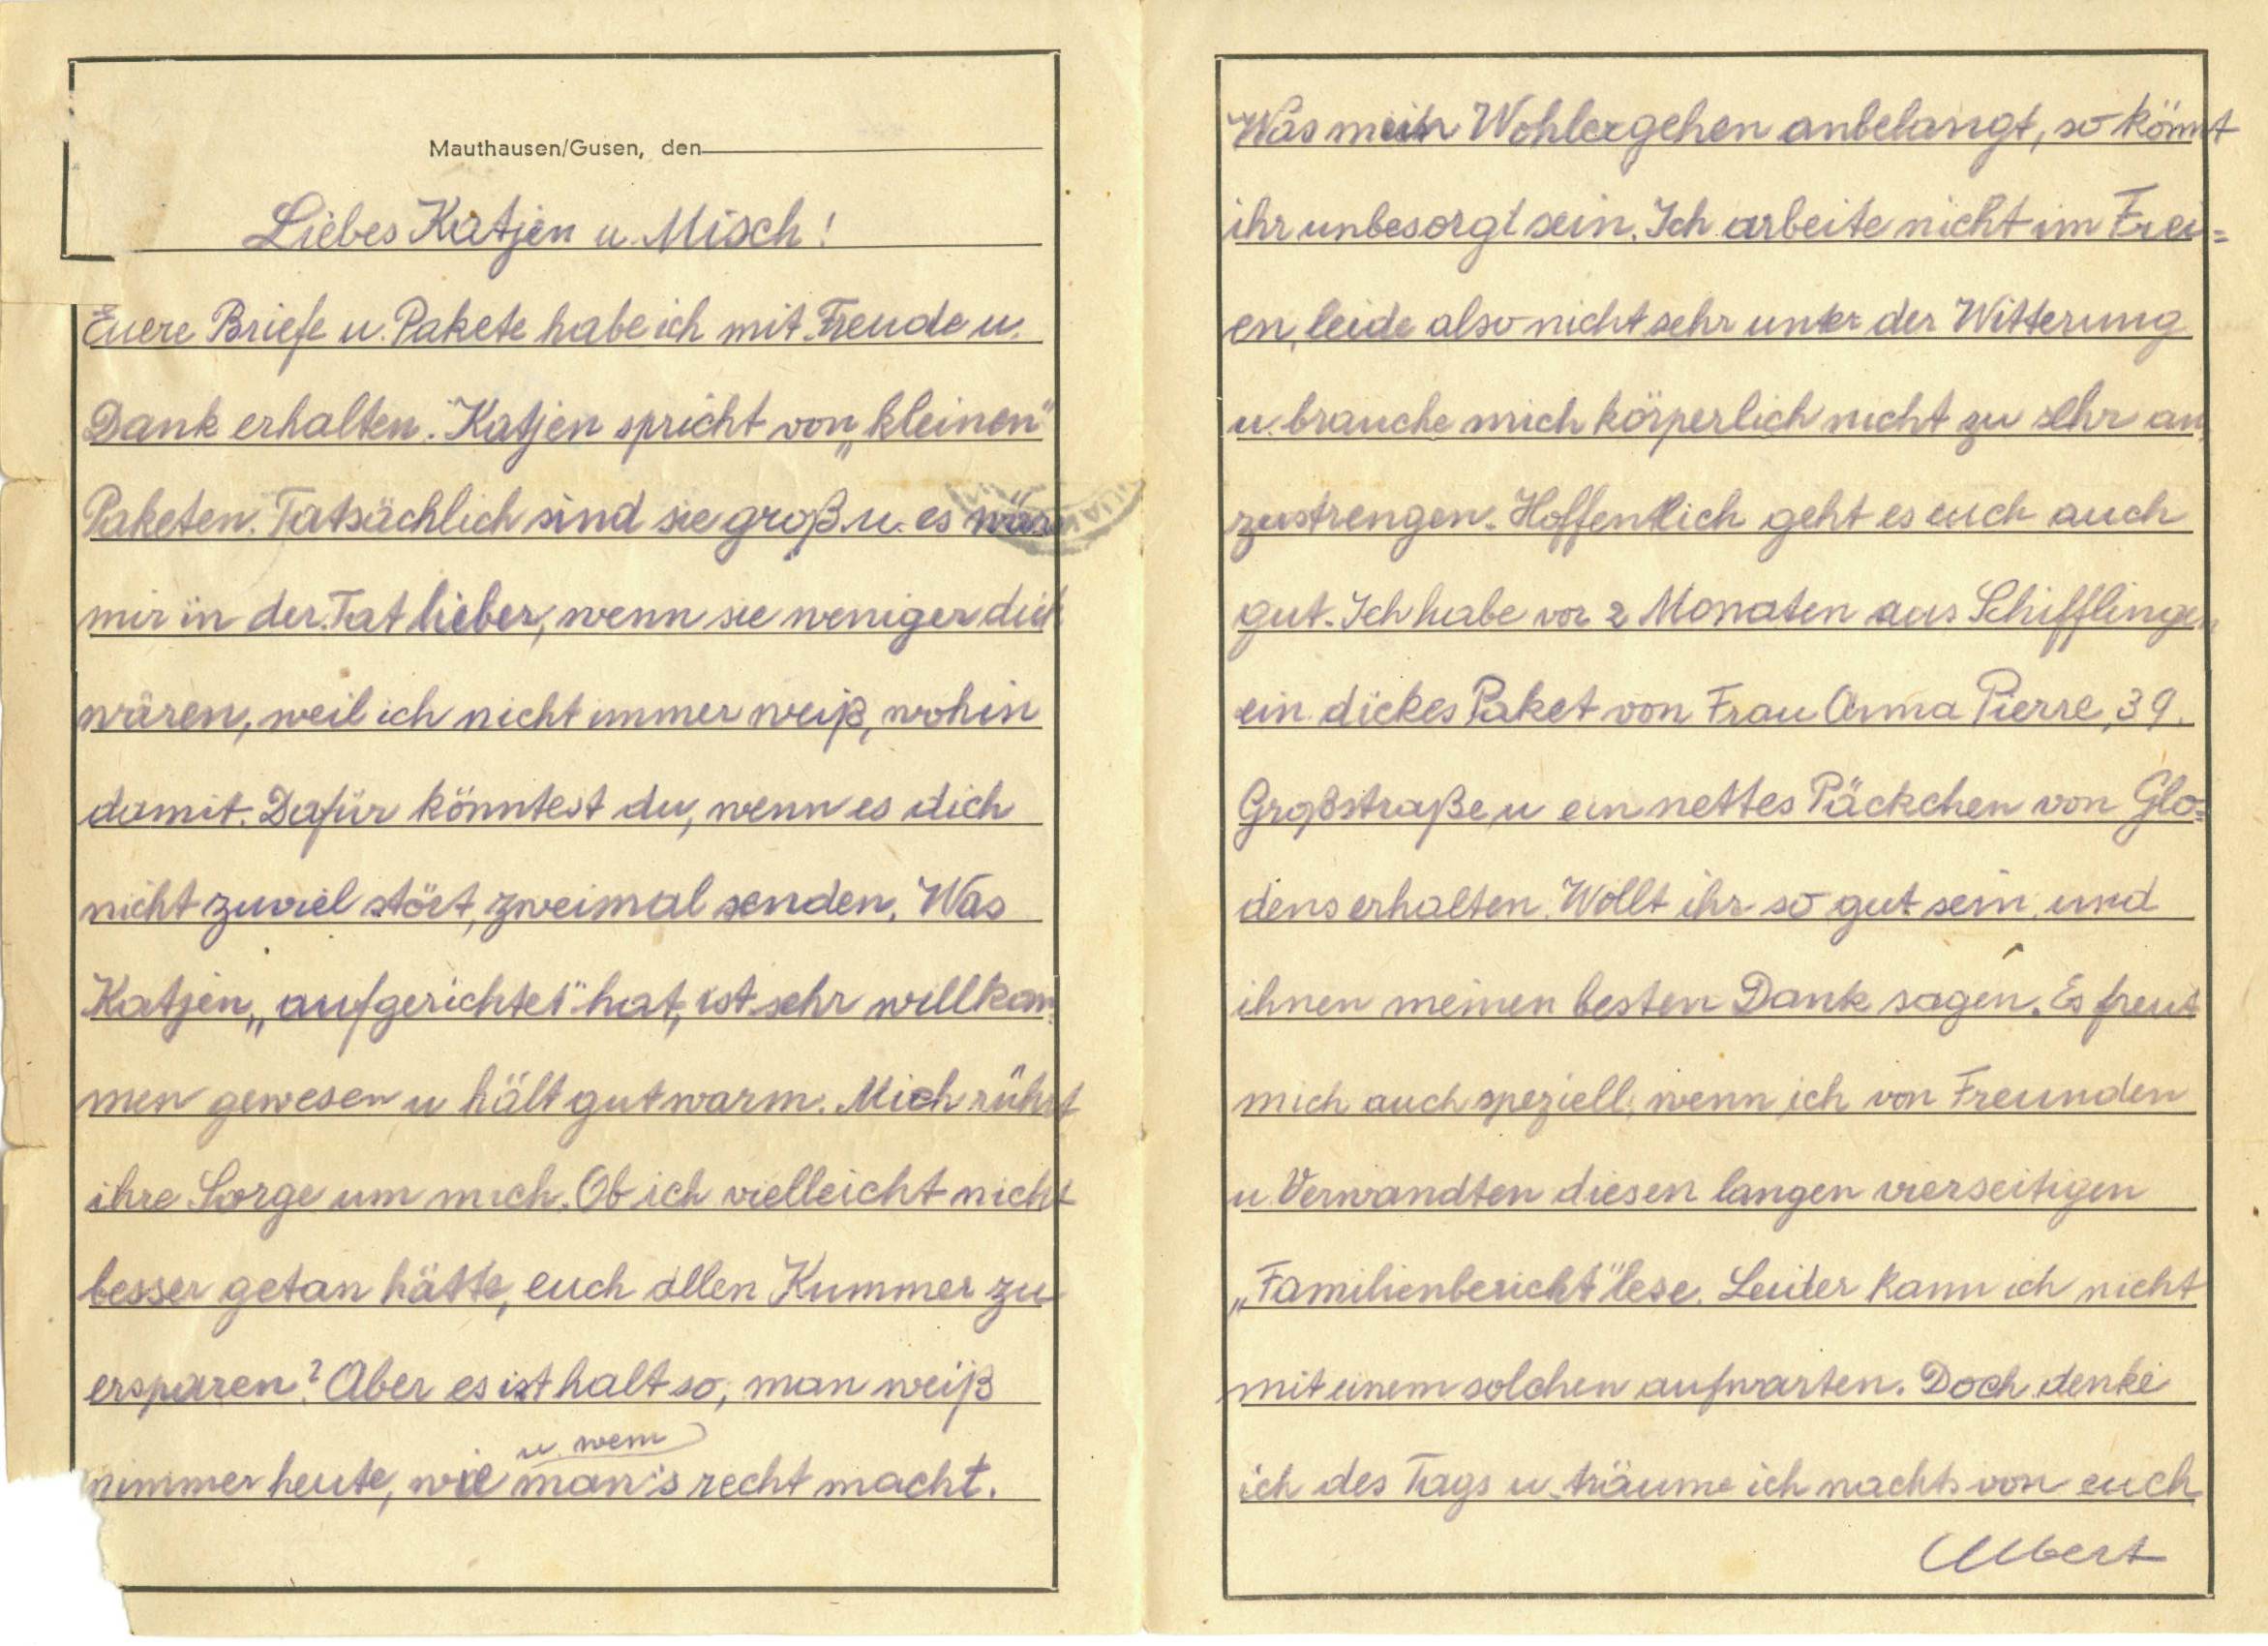 Mauthausen/Gusen, den
Liebes Katjen u. Misch!
Euere Briefe u. Pakete habe ich mit Freude u.
Dank erhalten. Katjen spricht von „kleinen"
Paketen. Tatsächlich sind sie groß u. es wäre
mir in der Tat lieber, wenn sie weniger dick
wären, weil ich nicht immer weiß, wohin
damit. Dafür könntest du, wenn es dich
nicht zuviel stört, zweimal senden. Was
Katjen „aufgerichtet" hat, ist sehr willkom
men gewesen u hält gut warm. Mich rührt
ihre Sorge um mich. Ob ich vielleicht nicht
besser getan hätte, euch allen Kummer zu
ersparen? Aber es ist halt so, man weiß
u. wem
nimmer heute, wie man's recht macht.
Was mein Wohlergehen anbelangt, so könnt
ihr unbesorgt sein. Ich arbeite nicht im Frei=
en, leide also nicht sehr unter der Witterung
u. brauche mich körperlich nicht zu sehr an
zustrengen. Hoffentlich geht es euch auch
gut. Ich habe vor 2 Monaten aus Schifflingen
ein dickes Paket von Frau Anna Pierre, 39.
Großstraße, u ein nettes Päckchen von Glo=
dens erhalten. Wollt ihr so gut sein, und
ihnen meinen besten Dank sagen. Es freut
mich auch speziell, wenn ich von Freunden
u. Verwandten diesen langen vierseitigen
„Familienbericht" lese. Leider kann ich nicht
mit einem solchen aufwarten. Doch denke
ich des Tags u. träume ich nachts von euch
Albert